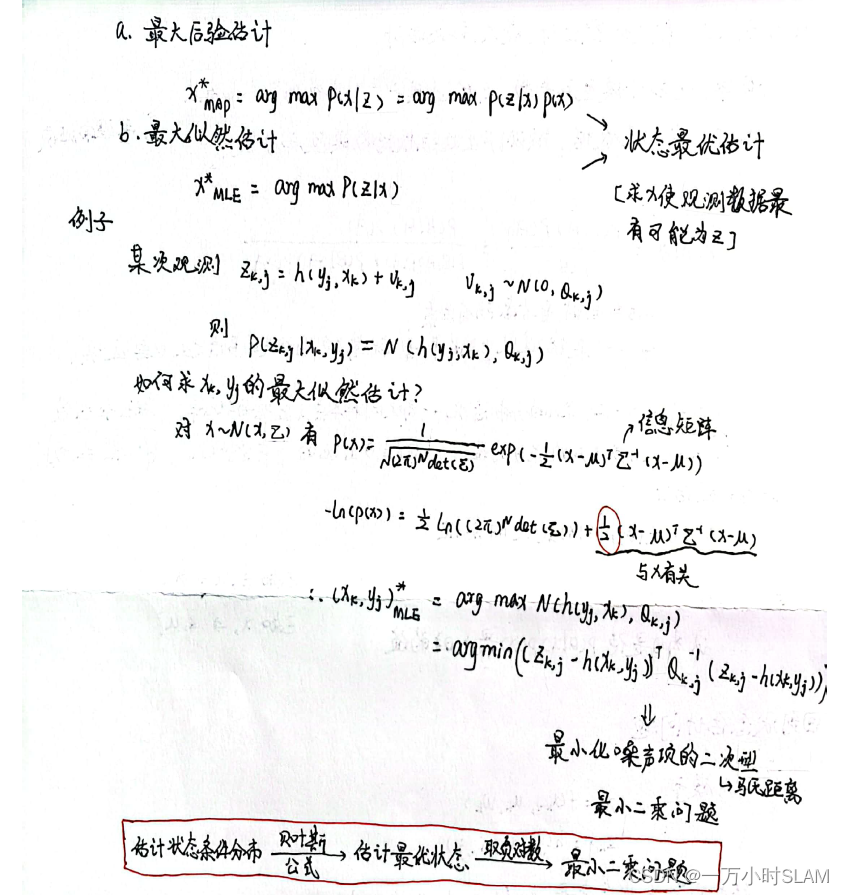 a. 最大后验估计
x*MAP = arg max P(x|z) = arg max P(z|x)P(x)
b. 最大似然估计
x*MLE = arg max P(z|x)
状态最优估计
[求x使观测数据最
有可能为z]
例子
某次观测 z_{k,j} = h(y_j, x_k) + v_{k,j} v_{k,j} ~ N(0, Q_{k,j})
则 P(z_{k,j}|x_k, y_j) = N(h(y_j, x_k), Q_{k,j})
如何求 x_k, y_j 的最大似然估计?
对 x~N(x, Σ) 有 P(x) = 1/√((2π)^N det(Σ)) exp(-1/2 (x-μ)^T Σ^{-1} (x-μ))
信息矩阵
-ln(P(x)) = 1/2 ln((2π)^N det(Σ)) + 1/2 (x-μ)^T Σ^{-1} (x-μ)
与x有关
∴ (x_k, y_j)*MLE = arg max N(h(y_j, x_k), Q_{k,j})
= arg min((z_{k,j} - h(x_k, y_j))^T Q_{k,j}^{-1} (z_{k,j} - h(x_k, y_j)))
⇓
最小化噪声项的二次型
↳马氏距离
最小二乘问题
估计状态条件分布 贝叶斯公式→ 估计最优状态 取负对数→ 最小二乘问题
CSDN @一万小时SLAM